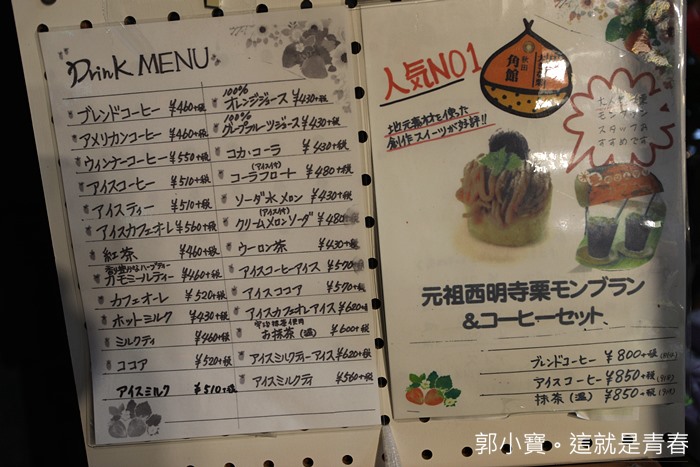 Drink MENU
ブレンドコーヒー ¥460+税
アメリカンコーヒー ¥460+税
ウィンナーコーヒー ¥550+税
アイスコーヒー ¥510+税
アイスティー ¥510+税
アイスカフェオーレ ¥560+税
紅茶 ¥460+税
香り豊かなハーブティー
カモミールティー ¥460+税
カフェオーレ ¥520+税
ホットミルク ¥430+税
ミルクティ ¥460+税
ココア ¥520+税
アイスミルク ¥510+税
100%
オレンジジュース ¥430+税
100%
グレープフルーツジュース ¥430+税
コカ・コーラ ¥430+税
(アイス付)
コーラフロート ¥480+税
ソーダ水 メロン ¥430+税
(アイス付)
クリームメロンソーダ ¥480
ウーロン茶 ¥430+税
アイスコーヒーアイス ¥570
アイスココア ¥570+税
アイスカフェオレアイス ¥620+税
宇治抹茶使用
お抹茶(温) ¥600+税
アイスミルクティーアイス ¥620+税
アイスミルクティ ¥560+税
人気NO1
秋田
角館
地元素材を使った
創作スイーツが好評!!
モンブラン
スタッフお
すすめです
元祖西明寺栗モンブラン
&コーヒーセット
ブレンドコーヒー ¥800+税
アイスコーヒー ¥850+税
抹茶(温) ¥850+税
郭小寶。這就是青春